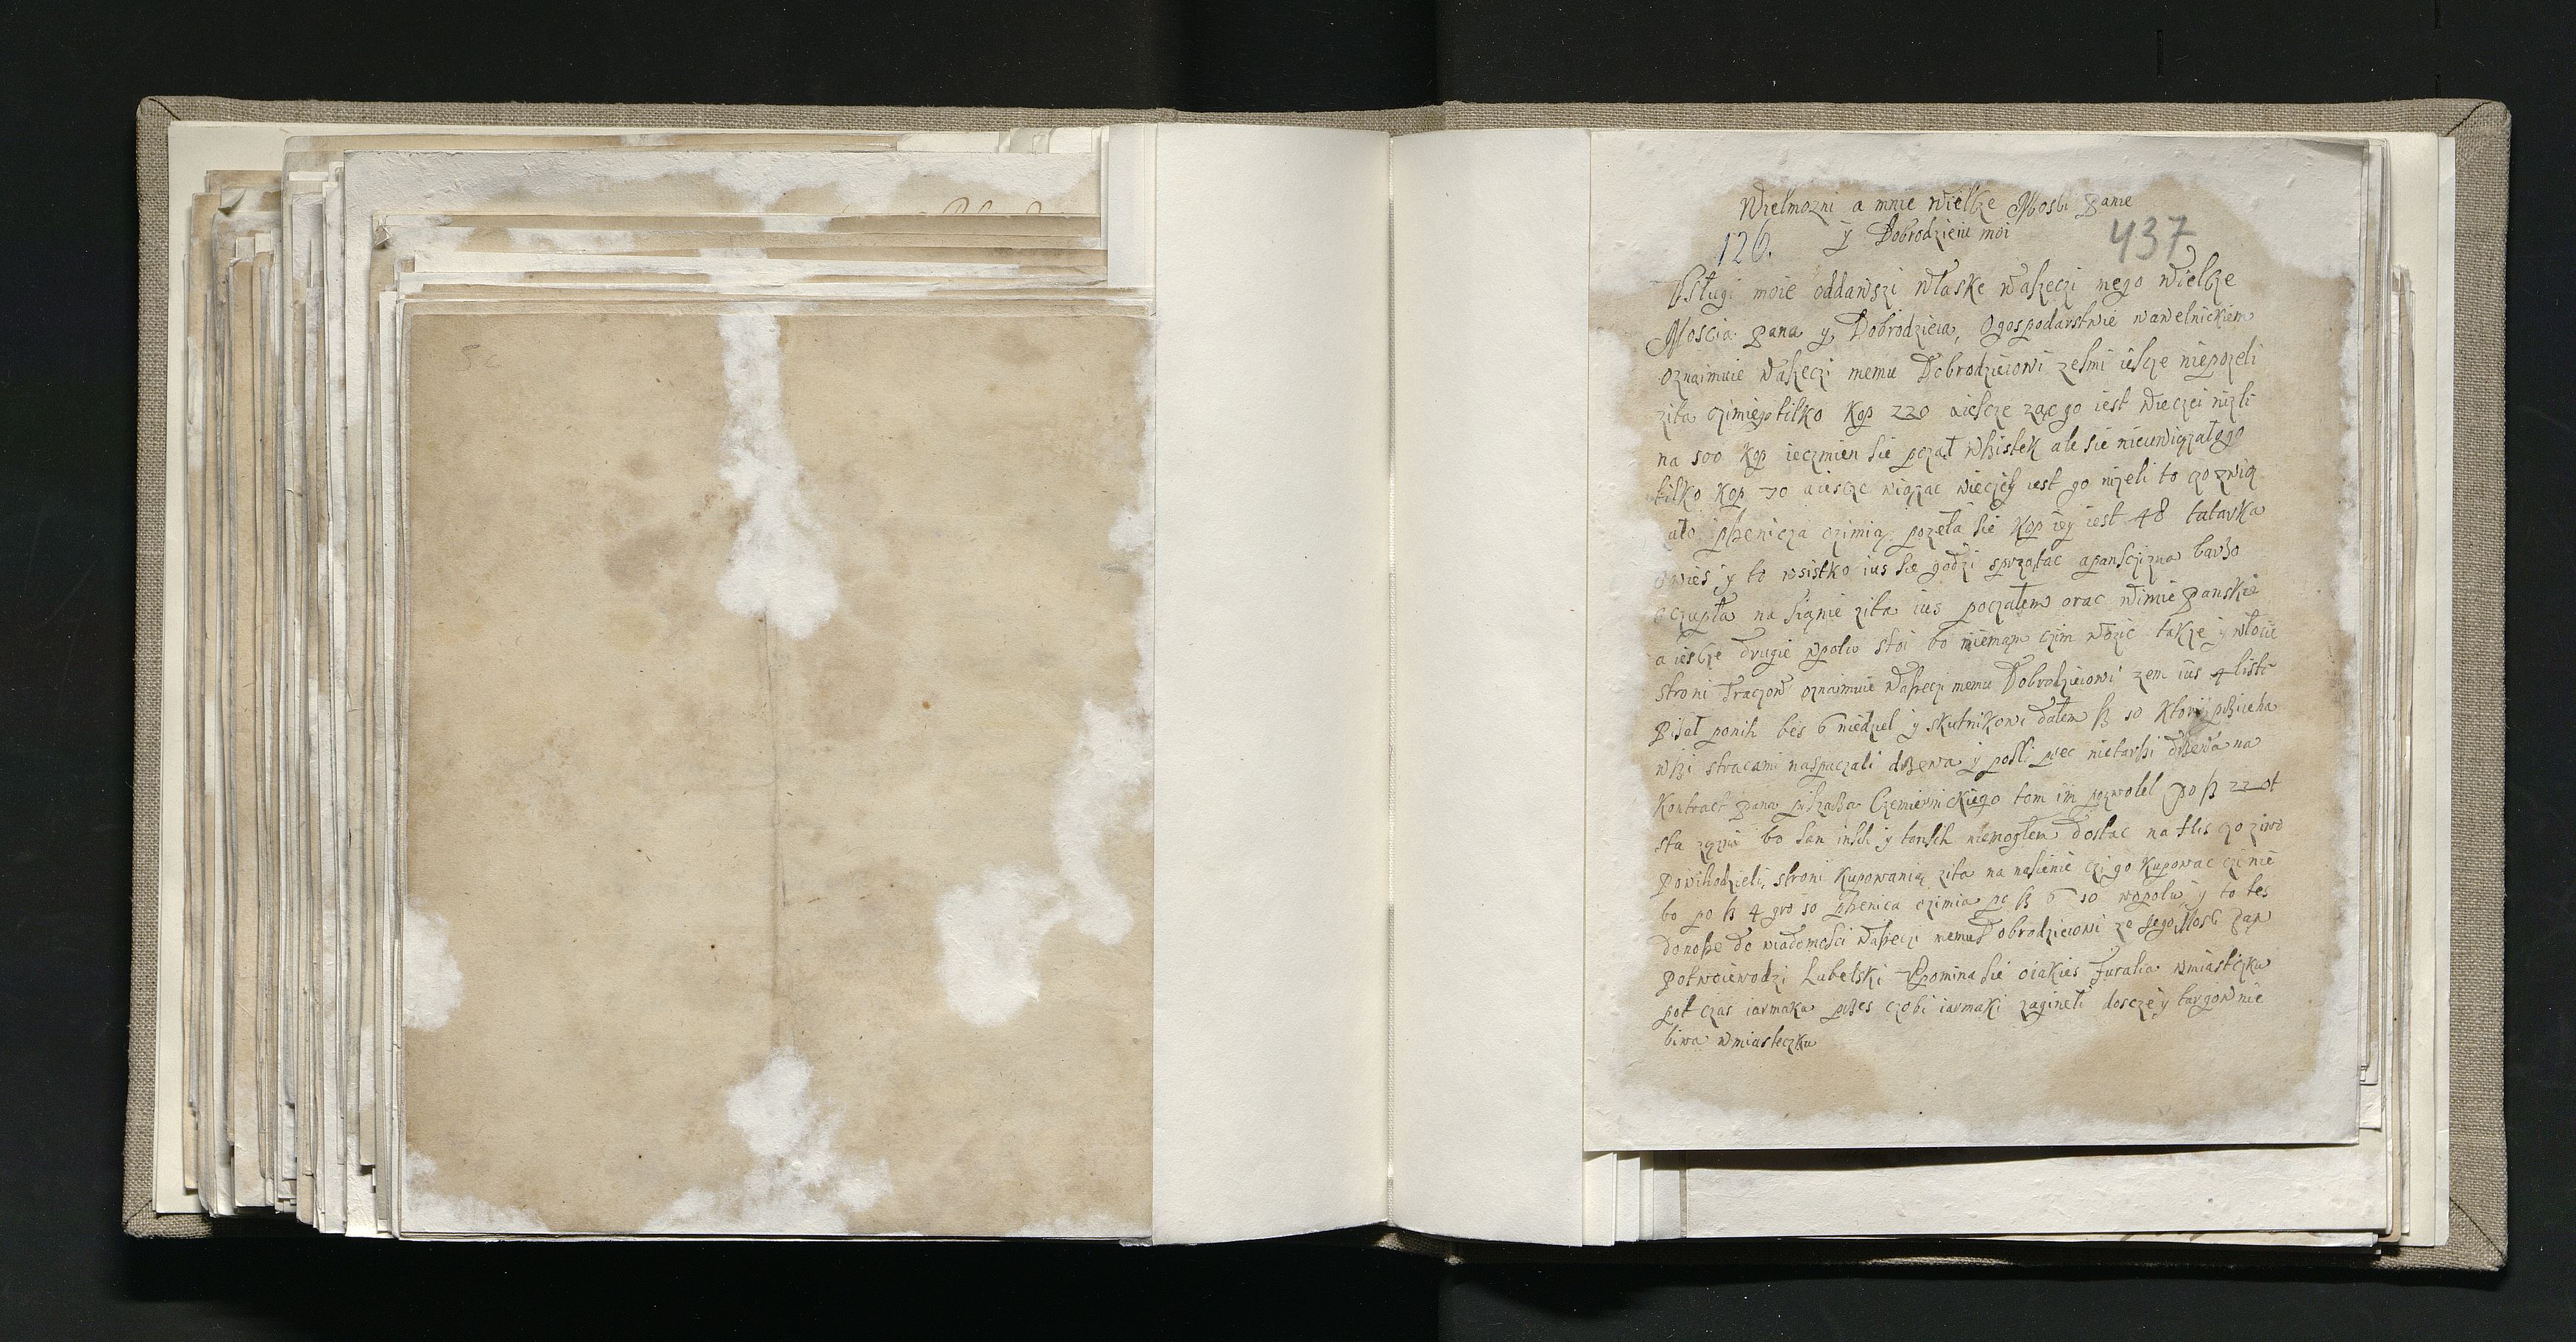 Wielmozni a mnie wielce Mosci panie
y Dobrodzieiu moi
126.
437
Usługi moie oddawszi właske waszeczi mego wielcze
Moscia pana y Dobrodzieia, Ogospodarstwie wawelnickiem
oznaimuie waszeczi memu Dobrodzieiowi zesmi iescze niepozeli
zita ozimiego tilko kop 220 aiescze ząc go iest wieczei nizli
na 500 kop ieczmien sie pczął wszistek ale sie nieuwiązało go
tilko kop 70 aiescze wiązac wieczey iest go nizeli to co zwią
ało pszenicza ozimia pozęła sie kop iey iest 48 tatarka
owies y to wsistko ius sie godzi sprzątac apanscizna barzo
sczupła na sianie zita ius począłem orac wimie panskie
a iescze drugie wpolu stoi bo niemam czim wozic takze y włoii
stroni Traczow oznaimuie waszeczi memu Dobrodzieiowi zem ius 4 listi
pisał ponih bes 6 niedziel y skutnikowi dałem fl 10 ktory pszieha
wszi stracami naspuczali drzewa y posli precz nietarszi drzewa na
kontract pana Czemiernickiego tom im pozwolel po fl 22 ot
sta bo san inszih y tanszih niemogłem dostac na tlis
powihodzieli, stroni kupowania zita na nasienie czi go kupowac czi nie
bo po fl 4 gro 10 pszenica ozimia po fl 6 10 wopolu y to tes
donosze do wiadomosci waszeczi memu Dobrodzieiowi ze Jego Mosc pan
potwoiewodzi Lubelski Upomina sie oiakies Juralia wmiasteczku
pot czas iarmaku przes czo bi iarmaki zagineli dosczey targow nie
biwa wmiasteczku